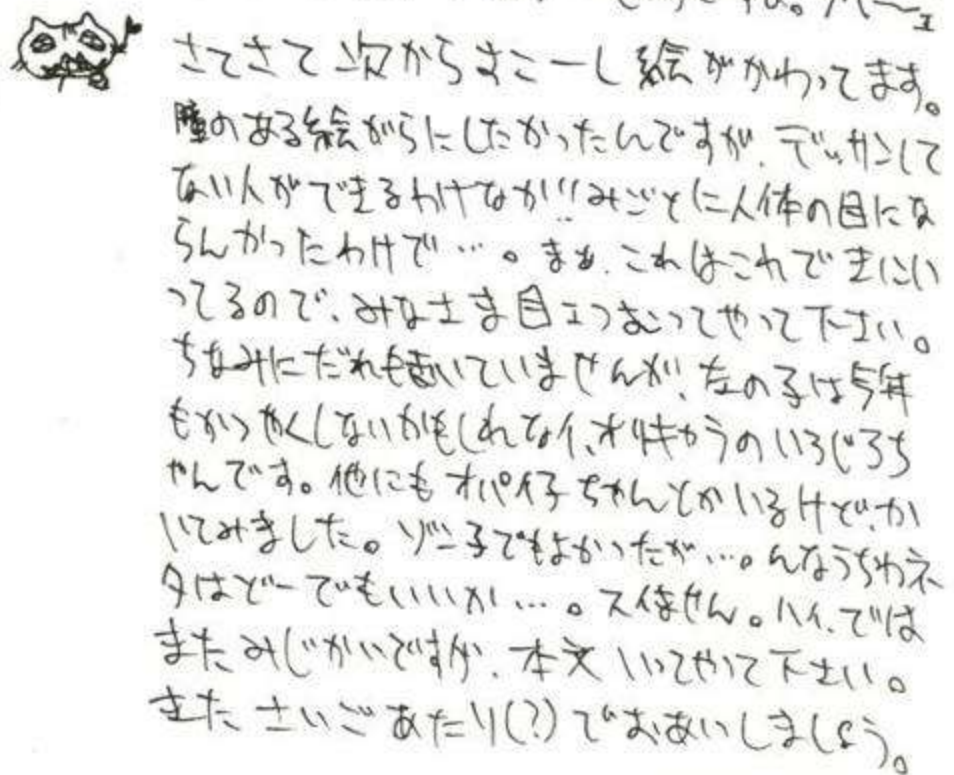 さてさて次からすこーし絵がかわってます。
瞳のある絵がらにしたかったんですが、デッサンして
ない人ができるわけなか!!みごとに人体の目にな
らんかったわけで…。まぁ、これはこれできにい
ってるので、みなさま目をつむってやって下さい。
ちなみにだれも聞いていませんが、左の子は今年
もかつやくしないかもしれないオリキャラのいろじろち
ゃんです。他にもオパイ子ちゃんとかいるけど、か
いてみました。ゾン子でもよかったが…。んなうちわネ
タはどーでもいいか…。スイません。ハイ、では
またみじかいですが、本文いってやって下さい。
またさいごあたり(?)でおあいしましょう。